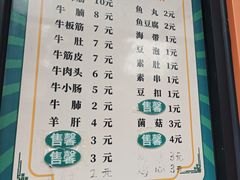 10元
牛腩 8元 鱼丸 2元
牛板筋 7元 鱼豆腐 2元
牛肚 7元 海带 1元
牛筋皮 7元 豆泡 1元
牛肉头 6元 素肚 1元
牛小肠 5元 素串 1元
牛肺 4元 豆扣 1元
羊肝 4元 售罄 1元
售罄 3元 菌菇 3元
售罄 3元 售罄 4元
2元 3元
3元